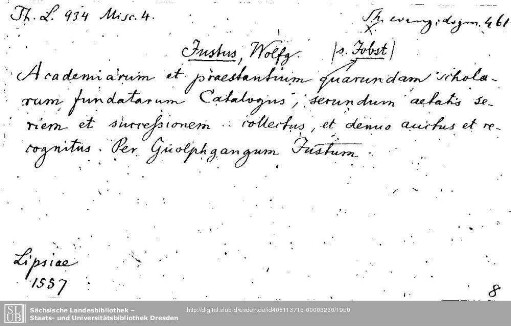 Th. L. 934 Misc. 4.
Th. evang. dogm. 461
Justus, Wolfg. |s. Jobst|
Academiarum et praestantium quarundam schola-
rum fundatarum Catalogus, secundum aetatis se-
riem et successionem collectus, et denuo auctus et re-
cognitus. Per Guolphgangum Justum.
Lipsiae
1557
8
SLUB
Sächsische Landesbibliothek –
Staats- und Universitätsbibliothek Dresden